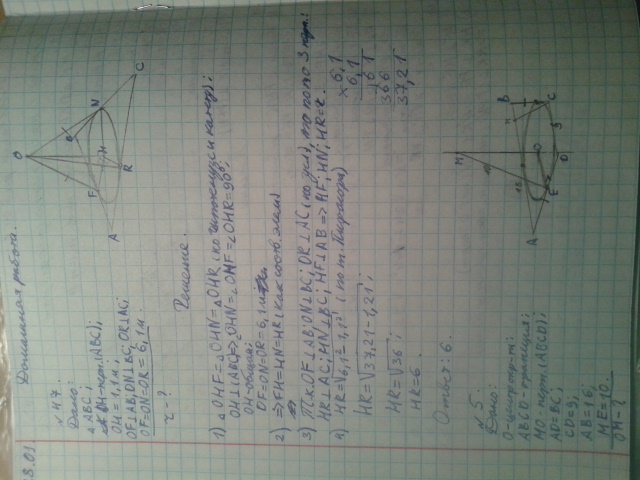 8.01
Домашняя работа.
№ 47.
Дано:
△ABC;
OH - перп. (ABC);
OH = 1,1 м;
OF⊥AB; ON⊥BC; OR⊥AC;
OF=OH=OR=6,1 м.
r - ?
O
B
N
C
F
H
A
R
Решение.
1) △OHF = △OHN = △OHR (по гипотенузе и катету);
OH⊥(ABC) => ∠OHN = ∠OHF = ∠OHR = 90°;
OH - общий;
OF=ON=OR=6,1 м
2) => FH=HN=HR (как соотв. элем)
3) Т.к. OF⊥AB; ON⊥BC; OR⊥AC (по усл), то по т о 3 перп.:
HR⊥AC; HN⊥BC; HF⊥AB => HF; HN; HR = r.
4) HR = √6,1² - 1,1² (по т. Пифагора)
HR = √37,21 - 1,21;
HR = √36;
HR = 6.
× 6,1
6,1
61
366
37,21
Ответ: 6.
№ 5.
Дано:
O - центр
ABCD - трапеция;
MO - перп. (ABCD);
AD = BC;
CD = 9;
AB = 16;
ME = 10.
OM - ?
M
B
C
O
A
E
D